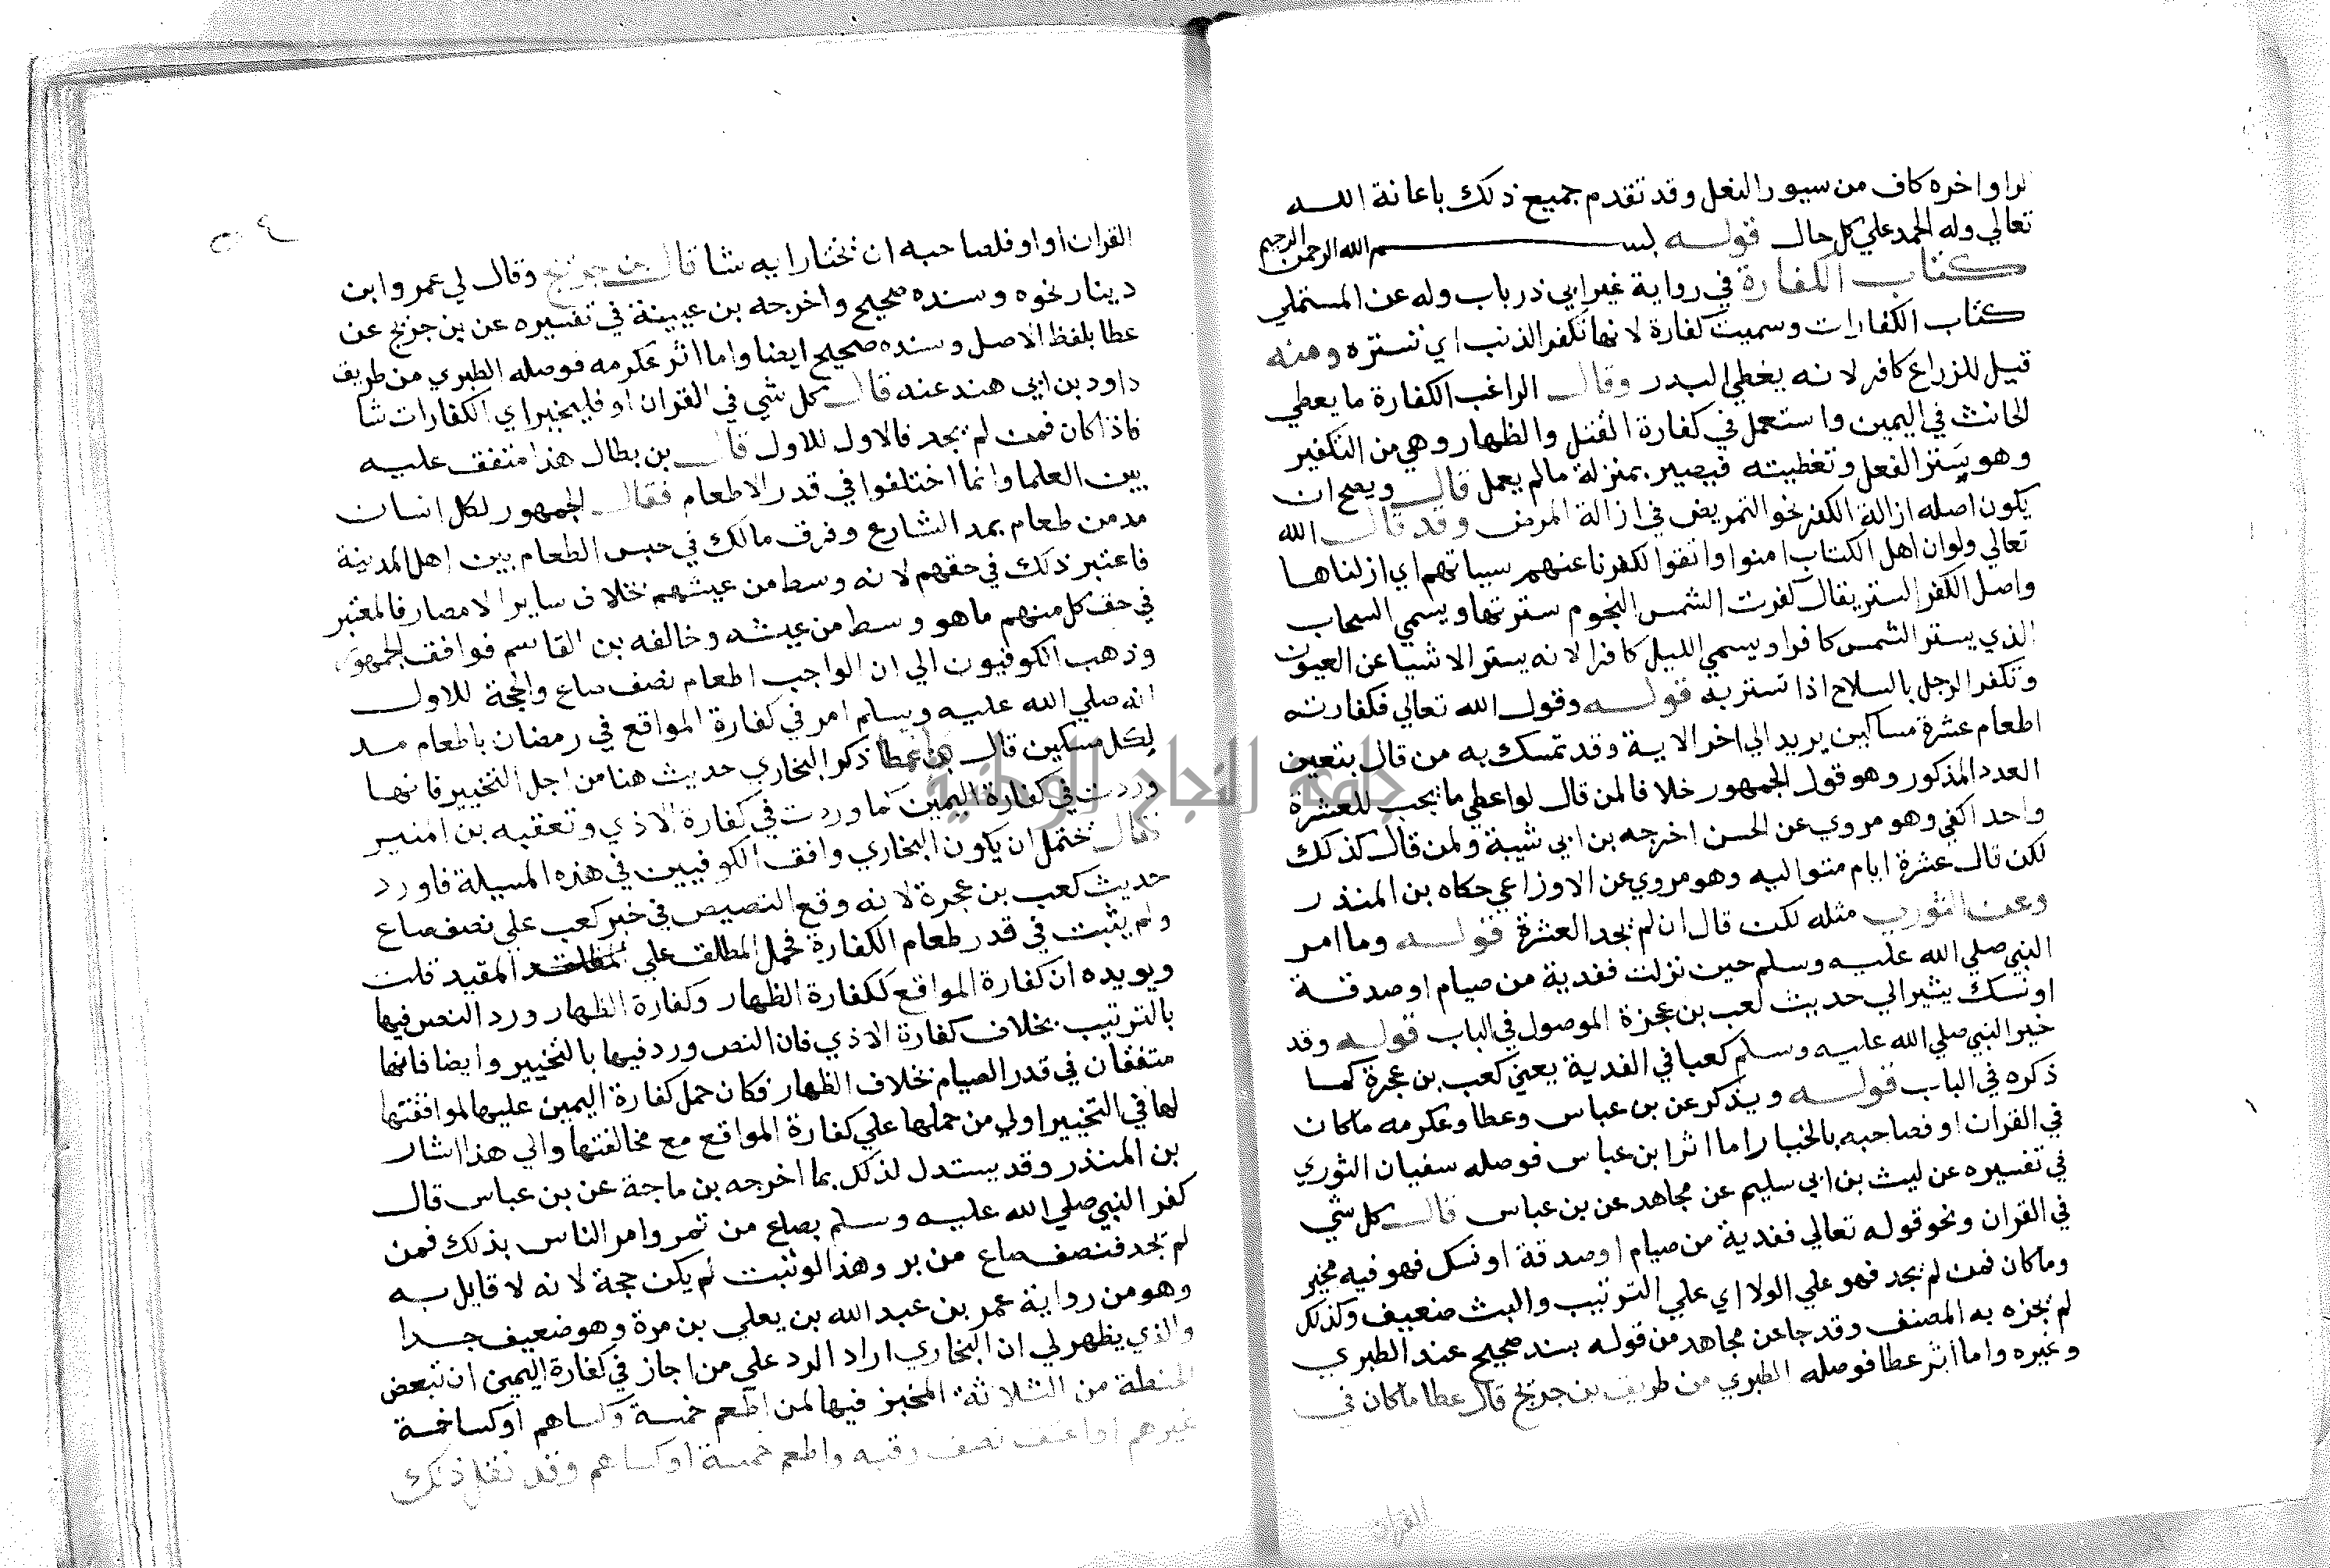 الراواخره كاف من سيور النعل وقد تقدم جميع ذلك باعانة الله
تعالي وله الحمد علي كل حال قوله بسم الله الرحمن الرحيم
كتاب الكفارة في رواية غير ابي ذر باب وله عن المستملي
كتاب الكفارات وسميت كفارة لانها تكفر الذنب اي تستره ومنه
قيل للزراع كافر لانه يغطي البدر وقال الراغب الكفارة ما يعطي
الحانث في اليمين واستعمل في كفارة القتل والظهار وهي من التكفير
وهو ستر الفعل وتغطيته فيصير بمنزلة مالم يعمل قال ويصح ان
يكون اصله ازالة الكفر نحو التمريض في ازالة المرض وقد قال الله
تعالي ولوان اهل الكتاب امنوا واتقوا لكفرنا عنهم سياتهم اي ازلناها
واصل الكفر الستر يقال كفرت الشمس النجوم سترتها ويسمي السحاب
الذي يستر الشمس كافرا ويسمي الليل كافرا لانه يستر الاشيا عن العيون
وتكفر الرجل بالسلاح اذا تستر به قوله وقول الله تعالي فكفارته
اطعام عشرة مساكين يريد الي اخر الاية وقد تمسك به من قال بتعين
العدد المذكور وهو قول الجمهور خلافا لمن قال لواعطي ما يجب للعشرة
واحدا كفي وهو مروي عن الحسن اخرجه بن ابي شيبة ولمن قال كذلك
لكن قال عشرة ايام متواليه وهو مروي عن الاوزاعي حكاه بن المنذر
وعن الثوري مثله لكن قال ان لم يجد العشرة قوله وما امر
النبي صلي الله عليه وسلم حين نزلت ففدية من صيام او صدقة
او نسك يشير الي حديث كعب بن عجزة الموصول في الباب قوله وقد
خير النبي صلي الله عليه وسلم كعبا في الفدية يعني كعب بن عجرة كما
ذكره في الباب قوله ويذكر عن بن عباس وعطا وعكرمه ماكان
في القران او فصاحبه بالخيار اما اثر ابن عباس فوصله سفيان الثوري
في تفسيره عن ليث بن ابي سليم عن مجاهد عن بن عباس قال كل شي
في القران ونحو قوله تعالي ففدية من صيام او صدقة او نسك فهو فيه مخير
وماكان فمن لم يجد فهو علي الولا اي علي الترتيب والبث ضعيف وكذلك
لم يجزه به المصنف وقد جا عن مجاهد من قوله بسند صحيح عند الطبري
وغيره واما اثر عطا فوصله الطبري من طريق بن جريج قال عطا ماكان في
القران
القران او او فلصاحبه ان يختار ايه شا قال بن جريج وقال لي عمرو ابن
دينار نحوه وسنده صحيح واخرجه بن عيينة في تفسيره عن بن جريج عن
عطا بلفظ الاصل وسنده صحيح ايضا واما اثر عكرمه فوصله الطبري من طريق
داود بن ابي هند عنه قال كل شي في القران او فليخير اي الكفارات شا
فاذا كان فمن لم يجد فالاول للاول قال بن بطال هذا متفق عليه
بين العلما وانما اختلفوا في قدر الاطعام فقال الجمهور لكل انسان
مد من طعام بمد الشارع وفرق مالك في جبس الطعام بين اهل المدينة
فاعتبر ذلك في حقهم لانه وسط من عيشهم بخلاف ساير الامصار فالمعتبر
في حق كل منهم ماهو وسط من عيشه وخالفه بن القاسم فوافق الجمهور
وذهب الكوفيون الي ان الواجب اطعام نصف صاع والحجة للاول
انه صلي الله عليه وسلم امر في كفارة المواقع في رمضان باطعام مد
لكل مسكين قال ذكر البخاري حديث هنا من اجل التخيير فانها
وردت في كفارة اليمين كما وردت في كفارة الاذي وتعقبه بن المنير
فقال يحتمل ان يكون البخاري وافق الكوفيين في هذه المسيلة فاورد
حديث كعب بن عجرة لانه وقع التنصيص في خبر كعب علي نصف صاع
ولم يثبت في قدر طعام الكفارة فحمل المطلق علي المقيد قلت
ويويده ان كفارة المواقع ككفارة الظهار وكفارة الظهار ورد النص فيها
بالترتيب بخلاف كفارة الاذي فان النص ورد فيها بالتخيير وايضا فانهما
متفقان في قدر الصيام بخلاف الظهار فكان حمل كفارة اليمين عليها لموافقتها
لها في التخيير اولي من حملها علي كفارة المواقع مع مخالفتها والي هذا اشار
بن المنذر وقد يستدل لذلك بما اخرجه بن ماجة عن بن عباس قال
كفر النبي صلي الله عليه وسلم بصاع من تمر وامر الناس بذلك فمن
لم يجد فنصف صاع من بر وهذا لو ثبت لم يكن حجة لانه لا قايل به
وهو من رواية عمر بن عبد الله بن يعلي بن مرة وهو ضعيف جدا
والذي يظهر لي ان البخاري اراد الرد علي من اجاز في كفارة اليمين ان تبعض
الخصلة من الثلاثة المخير فيها لمن اطعم خمسة وكساهم او كسا خمسة
غيرهم او اعتق نصف رقبه واطعم خمسة او كساهم وقد نقل ذلك
جامعة النجاح الوطنية